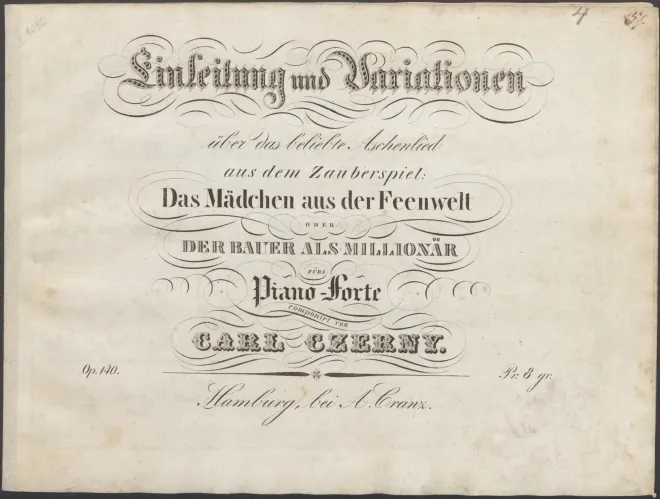 4
Einleitung und Variationen
über das beliebte Aschenlied
aus dem Zauberspiel:
Das Mädchen aus der Feenwelt
ODER
DER BAUER ALS MILLIONÄR
FÜRS
Piano-Forte
componirt von
CARL CZERNY.
Op. 140.
Pr. 8 gr.
Hamburg, bei A. Cranz.